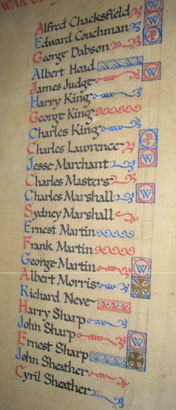 Alfred Chacksfield
Edward Couchman W
George Dabson
Albert Head W
James Judge W
Harry King
George King
Charles King
Charles Lawrence
Jesse Marchant W
Charles Masters
Charles Marshall W
Sydney Marshall
Ernest Martin
Frank Martin
George Martin W
Albert Morris
Richard Neve
Harry Sharp
John Sharp W
Ernest Sharp
John Sheather
Cyril Sheather